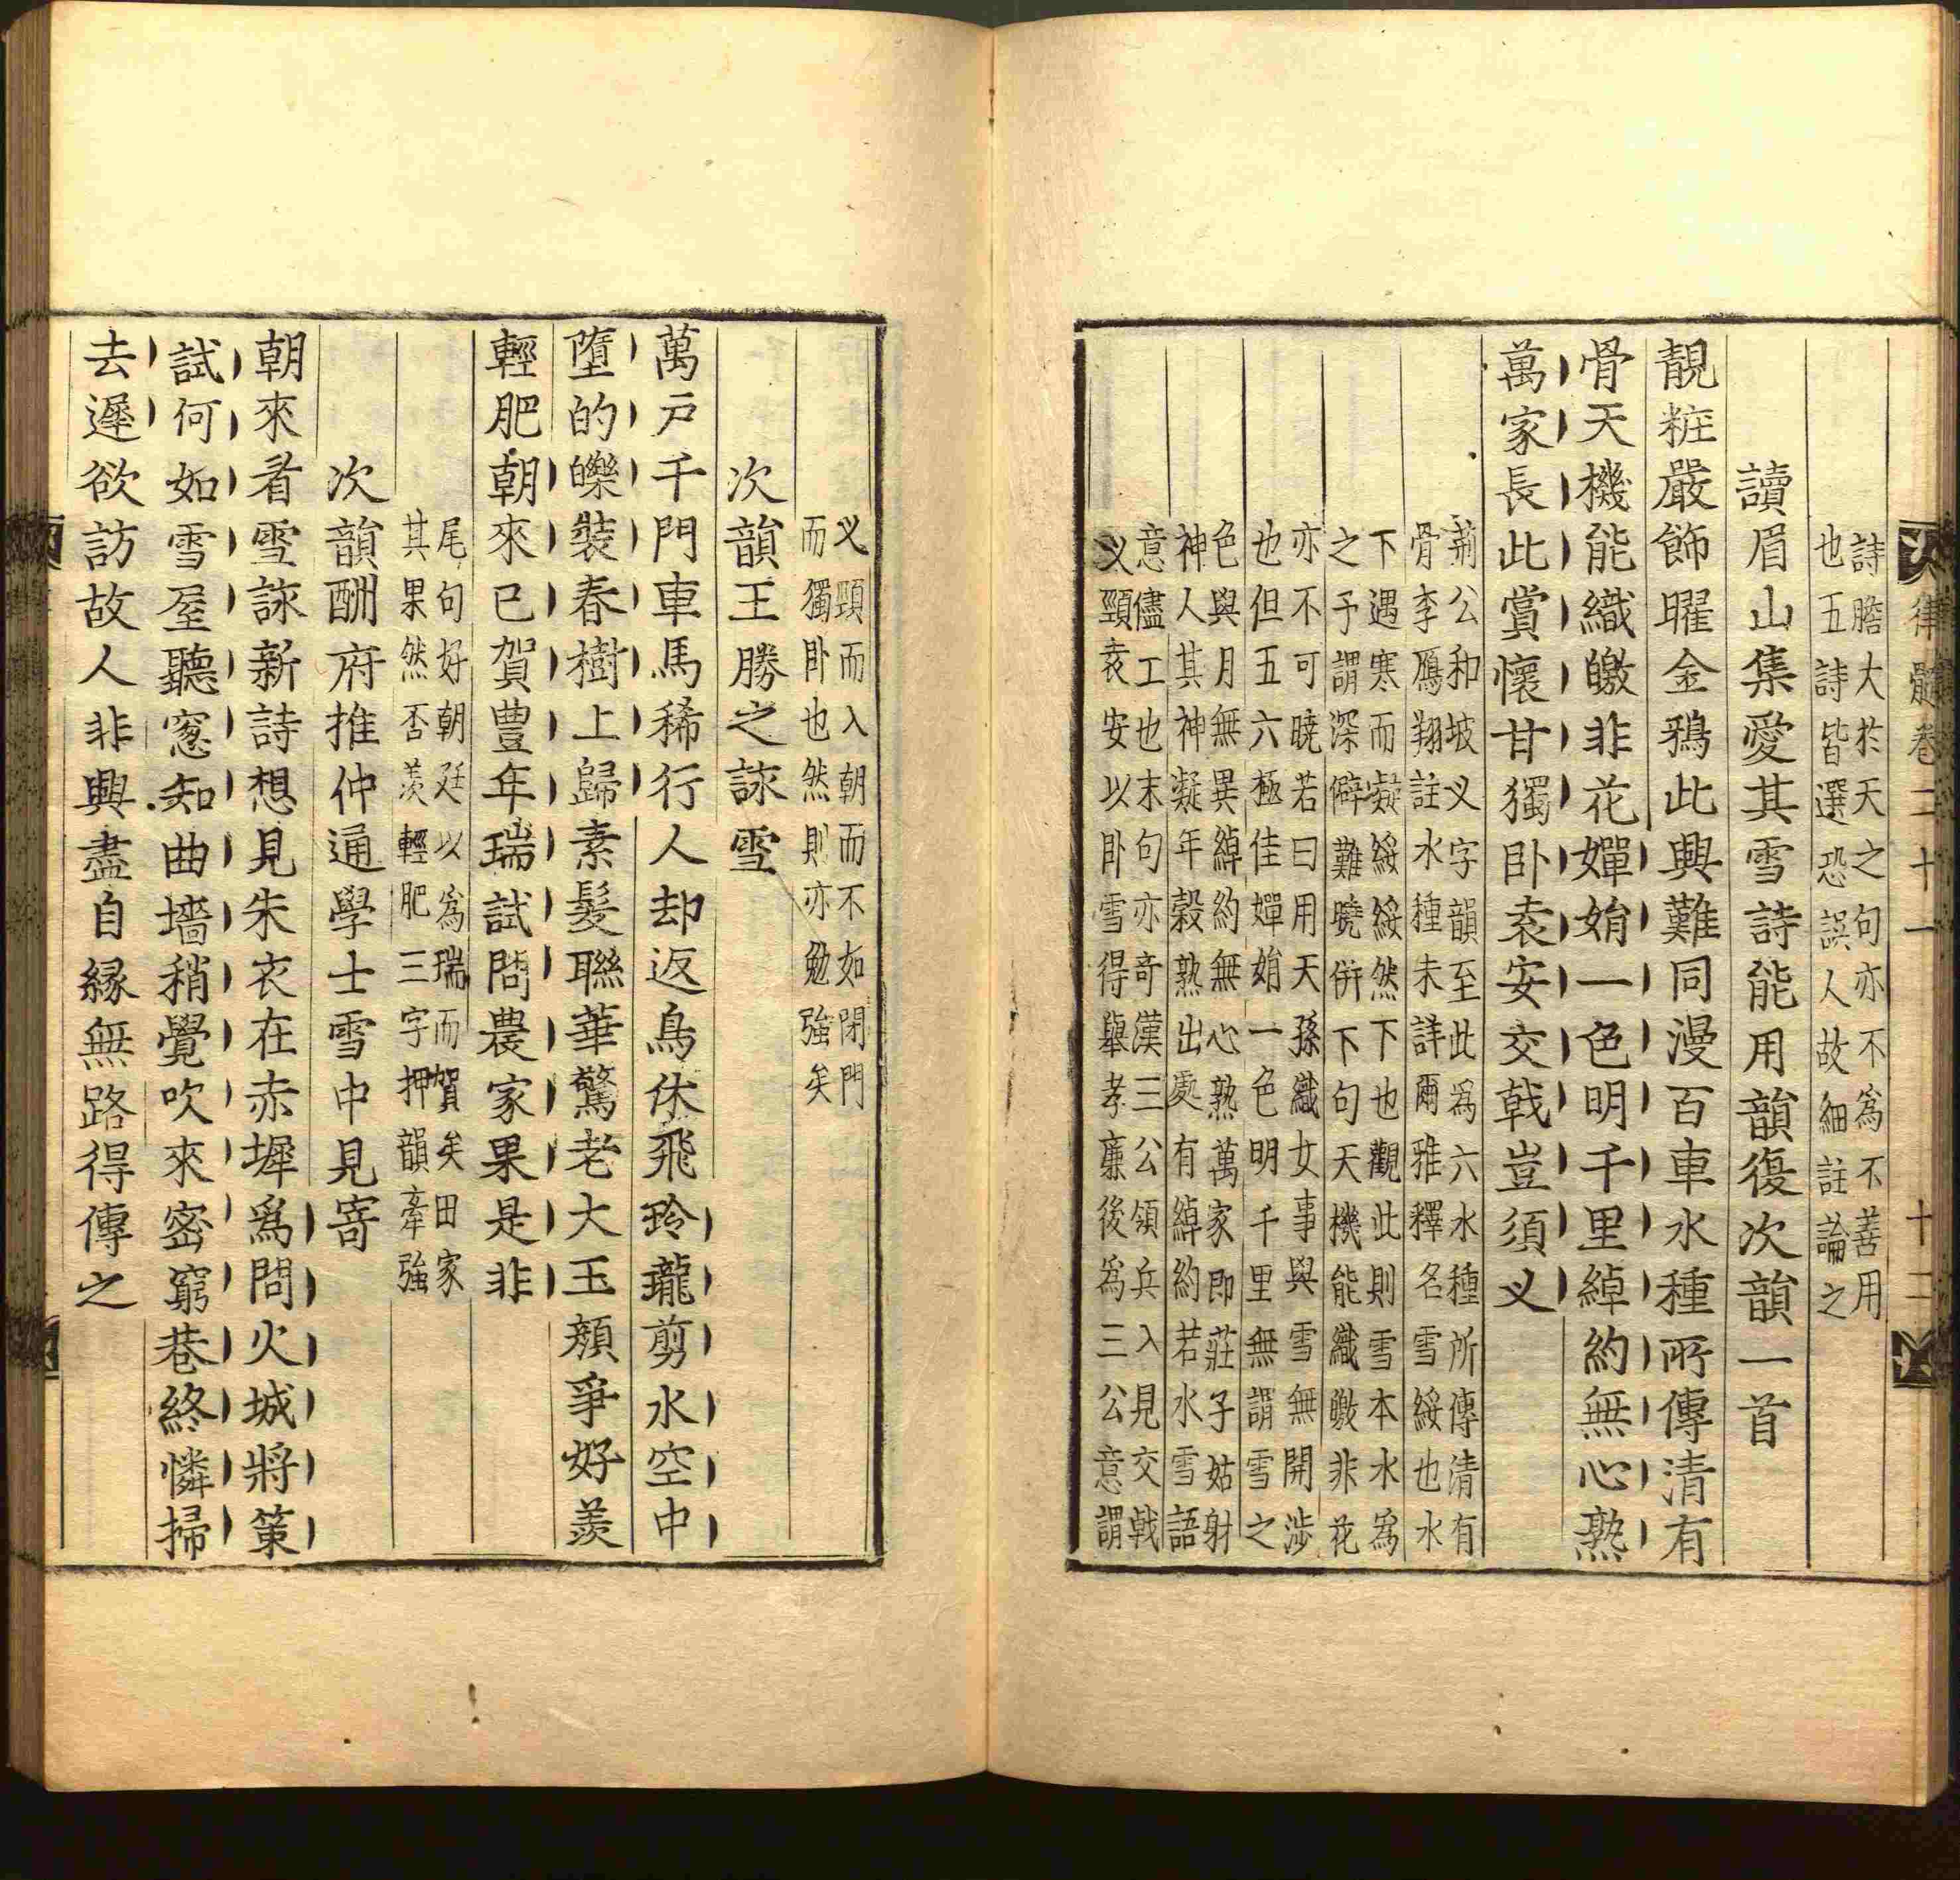 律髓卷二十一
十二
詩膽大於天之句亦不爲不善用
也五詩皆選恐誤人故細註論之
讀眉山集愛其雪詩能用韻復次韻一首
靚粧嚴飾曜金鵶此興難同漫百車水種所傳清有
骨天機能織皦非花嬋娟一色明千里綽約無心熟
萬家長此賞懷甘獨卧袁安交戟豈須义
荊公和坡义字韻至此爲六水種所傳清有
骨李鴈翔註水種未詳爾雅釋名雪綏也水
下遇寒而凝綏綏然下也觀此則雪本水爲
之予謂深僻難曉併下句天機能織皦非花
亦不可曉若曰用天孫織女事與雪無開涉
也但五六極佳嬋娟一色明千里無謂雪之
色與月無異綽約無心熟萬家即莊子姑射
神人其神凝年穀熟出處有綽約若水雪語
意儘工也末句亦奇漢三公領兵入見交戟
义頸袁安以卧雪得舉孝廉後爲三公意謂
义頸而入朝而不如閉門
而獨卧也然則亦勉強矣
次韻王勝之詠雪
萬戸千門車馬稀行人却返鳥休飛玲瓏剪水空中
墮的皪裝春樹上歸素髮聯華驚老大玉顏爭好羨
輕肥朝來已賀豊年瑞試問農家果是非
尾句好朝廷以爲瑞而賀矣田家
其果然否羨輕肥三字押韻牽強
次韻酬府推仲通學士雪中見寄
朝來看雪詠新詩想見朱衣在赤墀爲問火城將策
試何如雪屋聽窓知曲墻稍覺吹來密窮巷終憐掃
去遲欲訪故人非興盡自縁無路得傳之